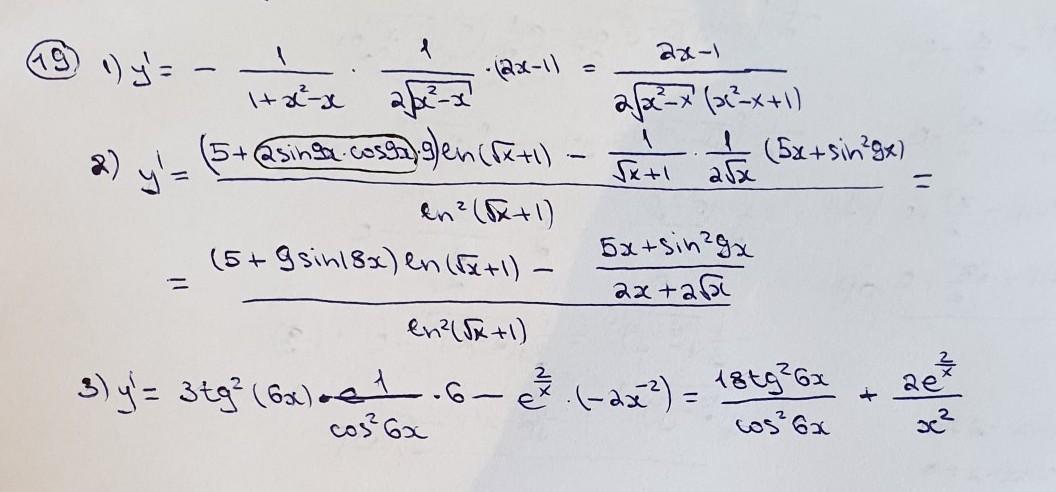 19) 1) y' = - 1/(1+x²-x) · 1/(2√(x²-x)) · (2x-1) = (2x-1)/(2√(x²-x) (x²-x+1))
2) y' = ((5+2sin9x·cos9x·9)ln(√x+1) - 1/(√x+1) · 1/(2√x) (5x+sin²9x))/(ln²(√x+1)) =
= ((5+9sin18x)ln(√x+1) - (5x+sin²9x)/(2x+2√x))/(ln²(√x+1))
3) y' = 3tg²(6x) · 1/(cos²6x) · 6 - e^(2/x) · (-2x⁻²) = (18tg²6x)/(cos²6x) + (2e^(2/x))/(x²)